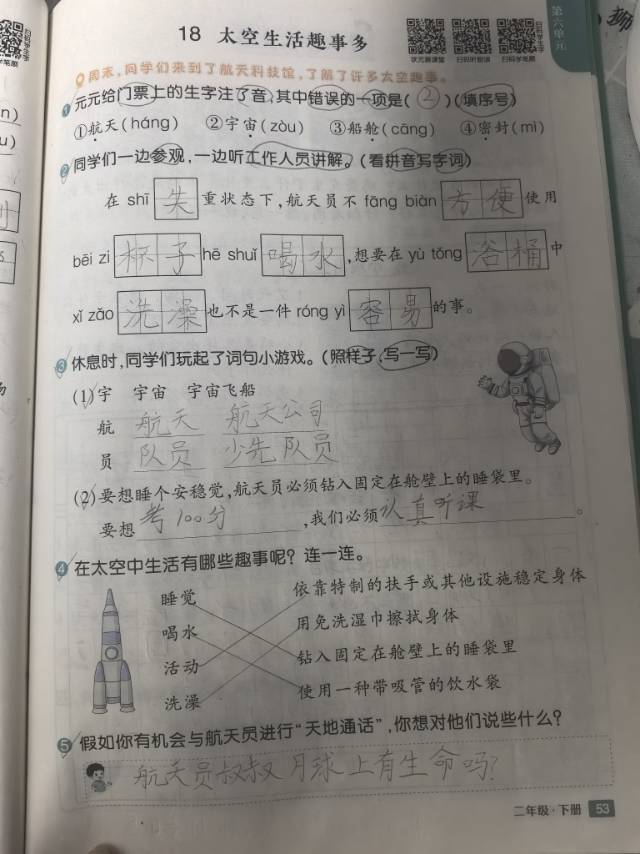 18 太空生活趣事多
第六单元
状元新课堂 扫码听朗读 扫码学笔顺
周末,同学们来到了航天科技馆,了解了许多太空趣事。
1 元元给门票上的生字注了音,其中错误的一项是(②)(填序号)
①航天(háng) ②宇宙(zòu) ③船舱(cāng) ④密封(mì)
2 同学们一边参观,一边听工作人员讲解。(看拼音写字词)
在 shī 失 重状态下,航天员不 fāng biàn 方便 使用
bēi zi 杯子 hē shuǐ 喝水,想要在 yù tǒng 浴桶 中
xǐ zǎo 洗澡 也不是一件 róng yì 容易 的事。
3 休息时,同学们玩起了词句小游戏。(照样子,写一写)
(1)宇 宇宙 宇宙飞船
航 航天 航天公司
员 队员 少先队员
(2)要想睡个安稳觉,航天员必须钻入固定在舱壁上的睡袋里。
要想考100分,我们必须认真听课。
4 在太空中生活有哪些趣事呢?连一连。
睡觉 依靠特制的扶手或其他设施稳定身体
喝水 用免洗湿巾擦拭身体
活动 钻入固定在舱壁上的睡袋里
洗澡 使用一种带吸管的饮水袋
5 假如你有机会与航天员进行“天地通话”,你想对他们说些什么?
航天员叔叔月球上有生命吗?
二年级·下册 53